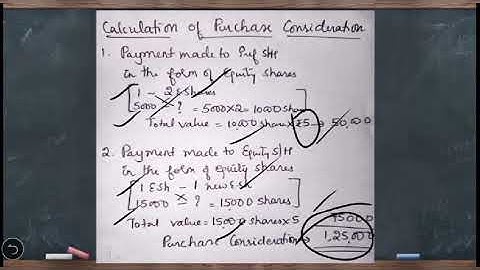 Calculation of Purchase Consideration
1. Payment made to Pref SH
in the form of Equity shares
1 - 2 E Shares
5000 - ? = 5000X2 = 10000 Shares
Total value = 10,000 shares X ₹5 → 50,000
2. Payment made to Equity S/H
in the form of equity shares
1 E Sh - 1 new E sh
15000 - ? = 15000 Shares
Total value = 15000 shares X 5 75000
Purchase Consideration 1,25,000